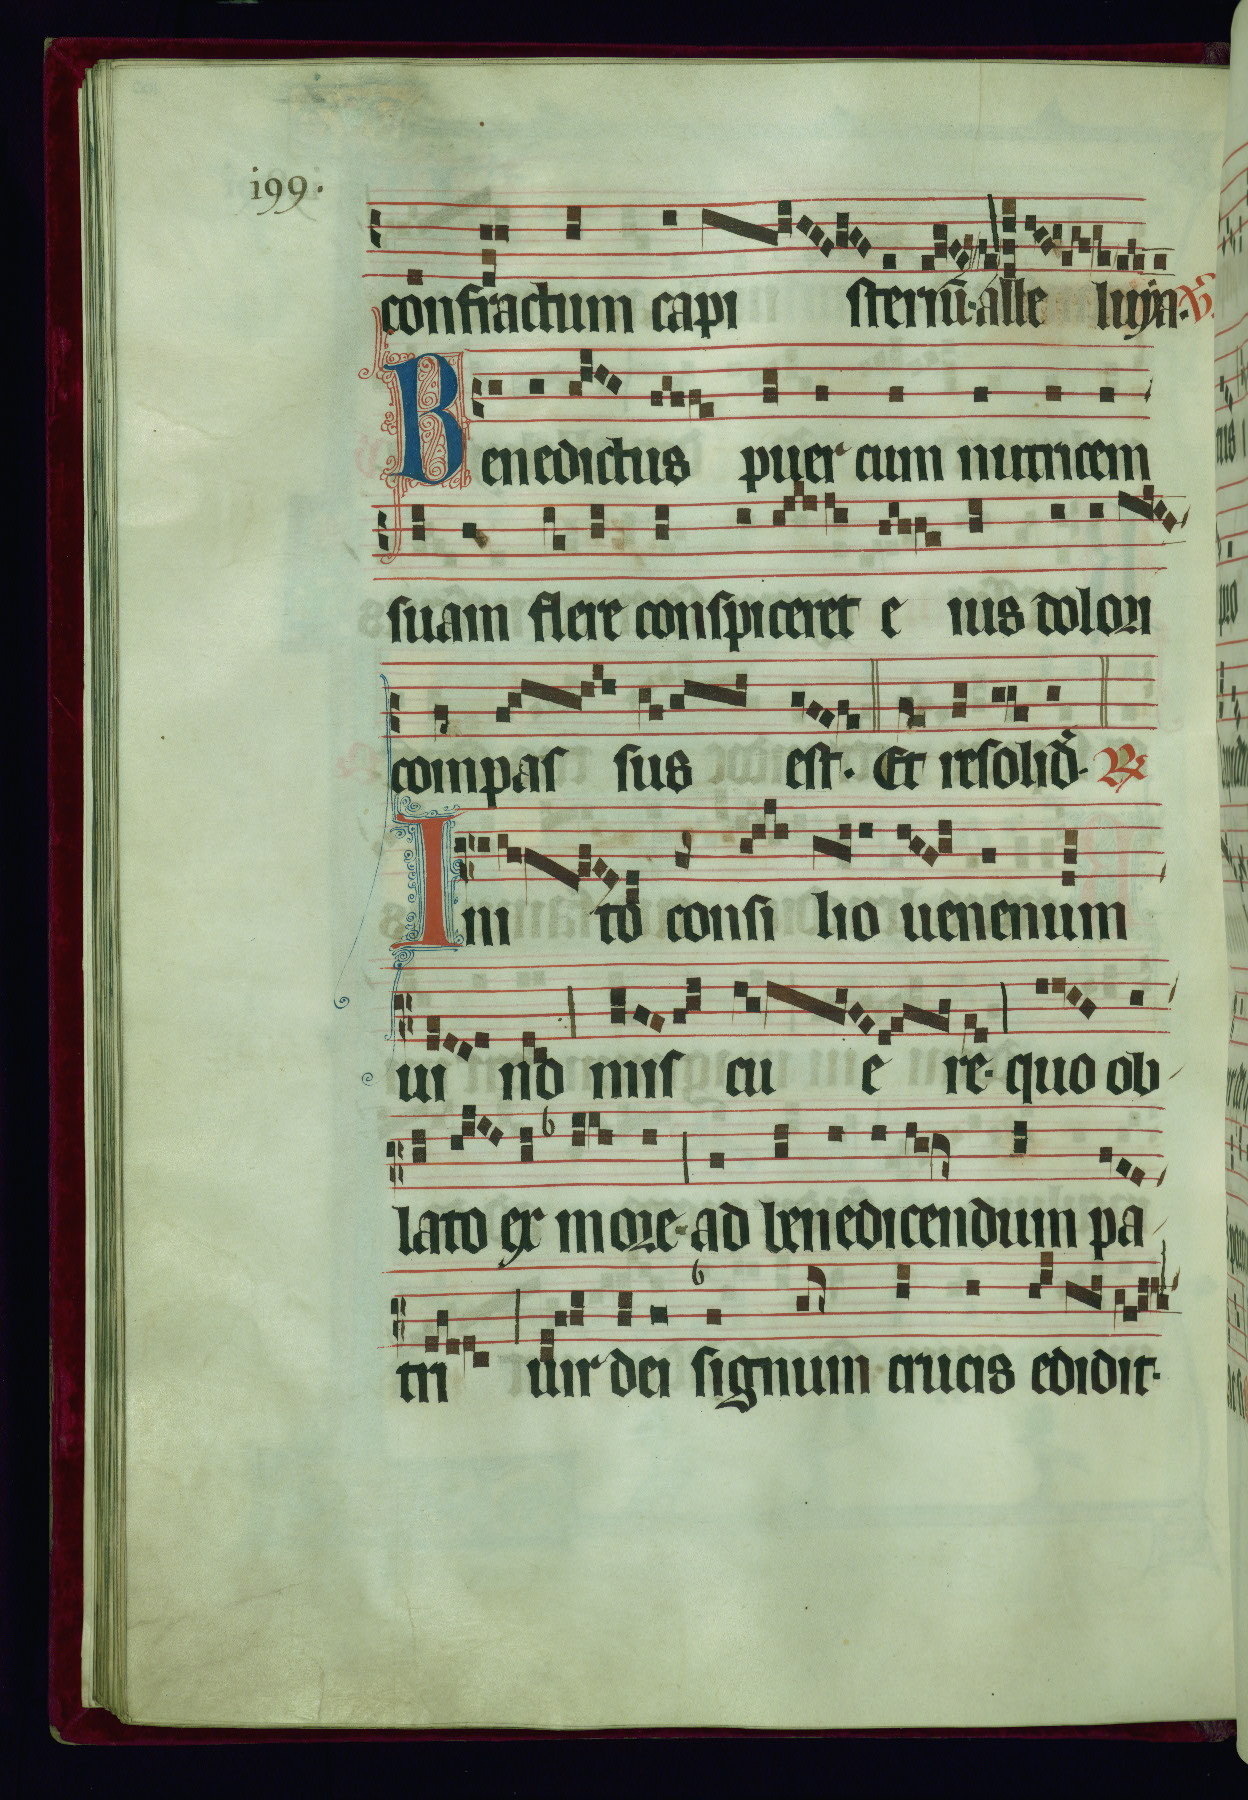 199.
confractum capi steriū·alle luya. V.
Benedictus puer cum nutricem
suam flere conspiceret e ius dolori
compas sus est. Et resolid. R
Ini to consi lio uenenum
ui no mis cu e re· quo ob
lato ex more· ad benedicendum pa
tri uir dei signum crucis edidit·